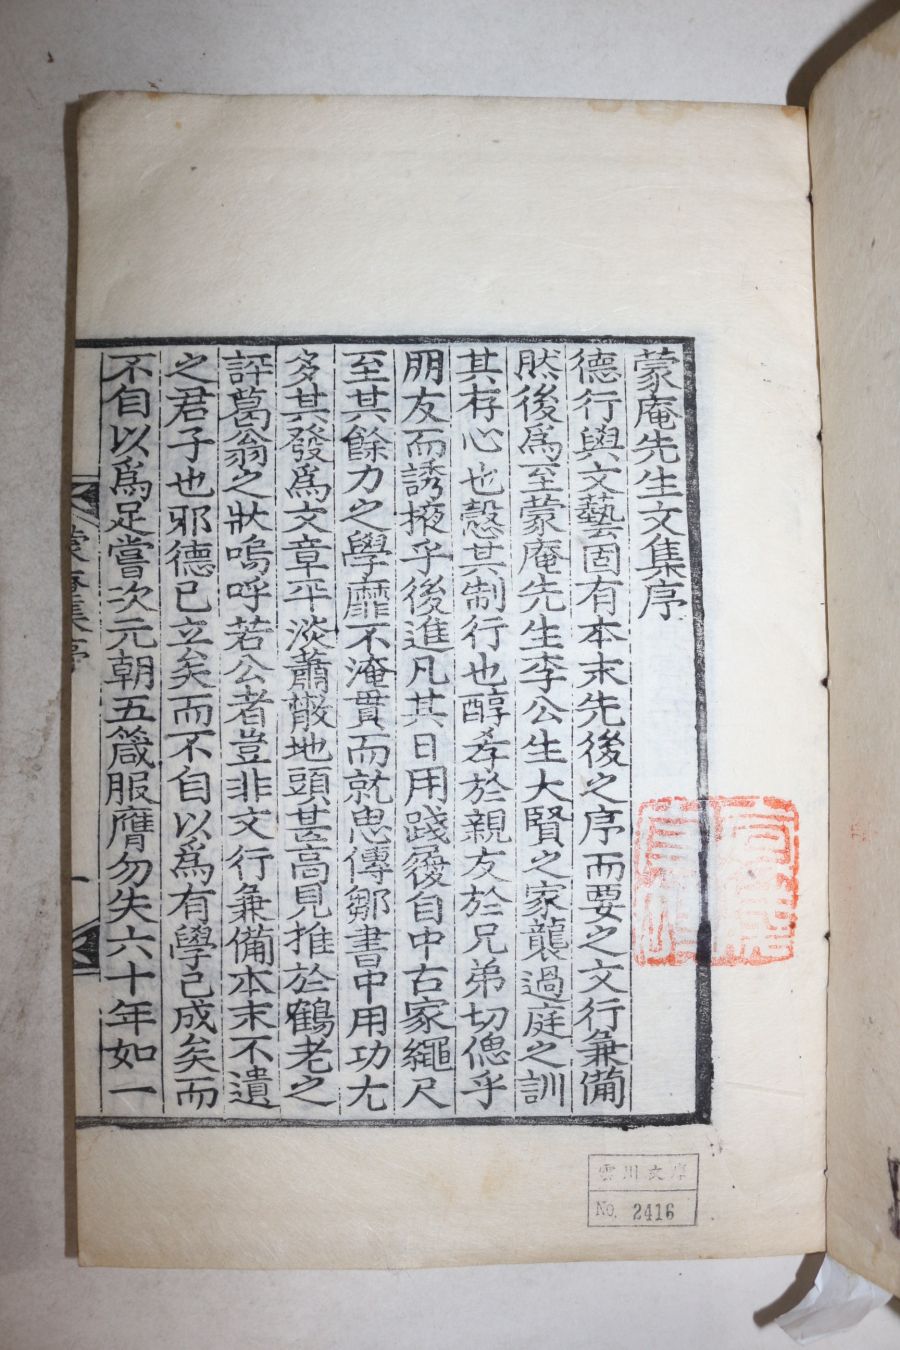 蒙庵先生文集序
德行與文藝固有本末先後之序而要之文行兼備
然後爲至蒙庵先生李公生大賢之家襲過庭之訓
其存心也慤其制行也醇孝於親友於兄弟切偲乎
朋友而誘掖乎後進凡其日用踐履自中古家繩尺
至其餘力之學靡不淹貫而就思傳鄒書中用功尤
多其發爲文章平淡蕭散地頭甚高見推於鶴老之
評葛翁之狀嗚呼若公者豈非文行兼備本末不遺
之君子也邪德已立矣而不自以爲有學已成矣而
不自以爲足嘗次元朝五箴服膺勿失六十年如一
蒙庵集序
一
雲川文庫
No. 2416